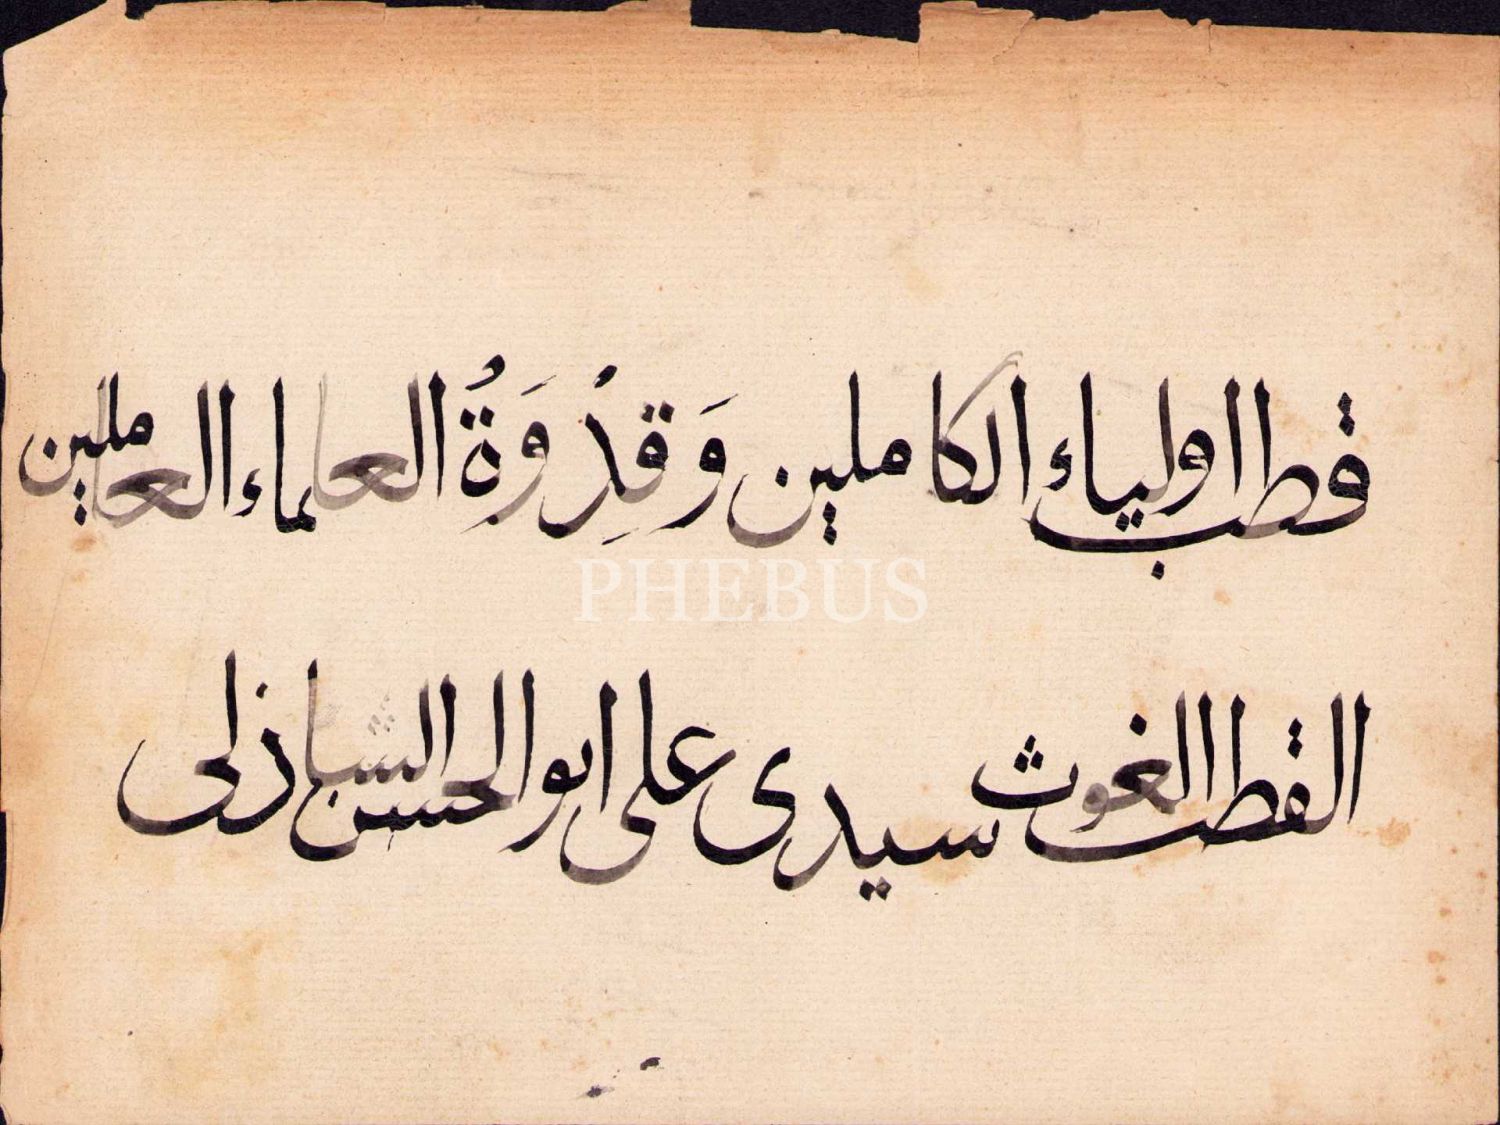 قطب اولياء الكاملين وَقِدْوَةُ العلماء العاملين
PHEBUS
القطب الغوث سيدى على ابو الحسن الشاذلى